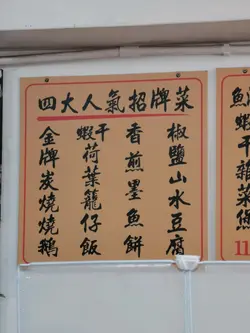 四大人氣招牌菜
椒鹽山水豆腐
香煎墨魚餅
蝦干荷葉籠仔飯
金牌炭燒燒鵝
11